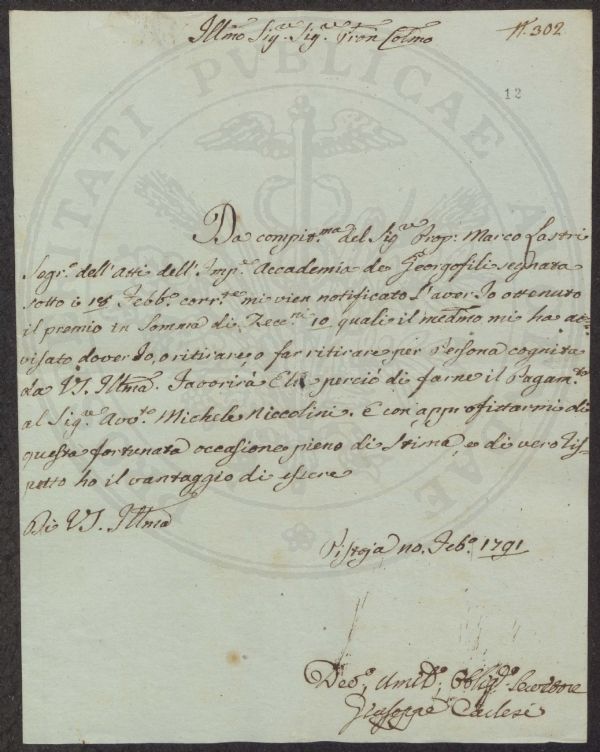 Illmo Sig.re Sig.re Pron Colmo
N. 302
12
Da compit.ma del Sig.re Prop: Marco Lastri
Segr.o dell'Atti dell'Imp.e Accademia de Georgofili segnata
sotto i 18 Febb.o corr.te mi vien notificato l'aver Io ottenuto
il premio in Somma di Zec.ni 10 quali il medmo mi ha av-
visato dover Io, o ritirare, o far ritirare per Persona cognita
da VS. Illma. Favorirà Ella perciò di farne il Pagam.to
al Sig.re Avv.to Michele Niccolini. E con approfittarmi di
questa fortunata occasione pieno di stima, e di vero ris-
petto ho il vantaggio di essere
Di VS. Illma
Pistoja Feb.o 1791
Dev.o, Umil.o, Obblig.o Servidore
Giuseppe
SOCIETATI PVBLICAE